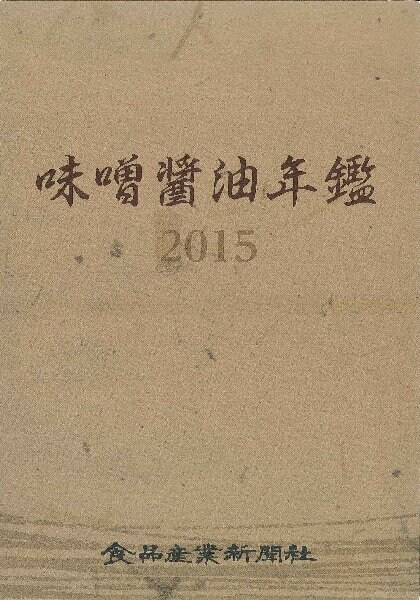 味噌醤油年鑑
2015
食品産業新聞社